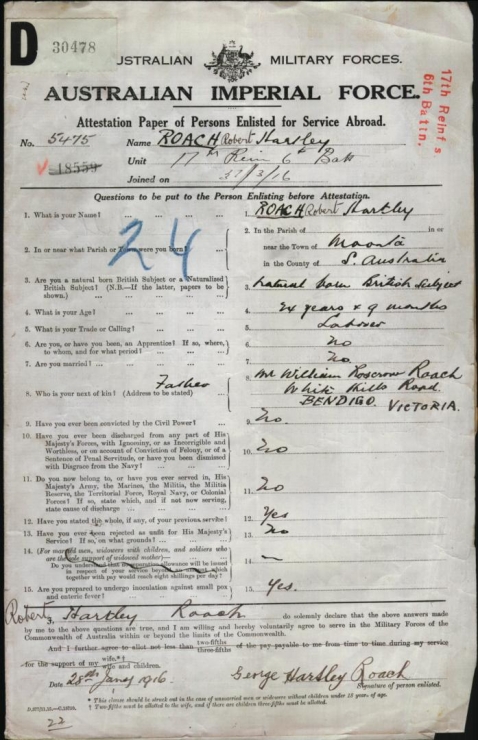 D
30478
USTRALIAN MILITARY FORCES.
AUSTRALIAN IMPERIAL FORCE.
17th Reinf's
6th Battn.
Attestation Paper of Persons Enlisted for Service Abroad.
No. 5475 Name ROACH Robert Hartley
18559 Unit 17th Rein 6th Batt
Joined on 31/3/16
Questions to be put to the Person Enlisting before Attestation.
1. What is your Name? ... ... ... 1. ROACH Robert Hartley
24
2. In or near what Parish or Town were you born? ... 2. In the Parish of in or
near the Town of Moonta
in the County of S. Australia
3. Are you a natural born British Subject or a Naturalized
British Subject? (N.B.—If the latter, papers to be
shown.) 3. Natural born British Subject
4. What is your Age? 4. 24 years & 9 months
5. What is your Trade or Calling? 5. Labourer
6. Are you, or have you been, an Apprentice? If so, where,
to whom, and for what period? 6. No
7. Are you married? 7. No
8. Who is your next of kin? (Address to be stated) Father 8. Mr William Roscrow Roach
White Hills Road.
BENDIGO. VICTORIA.
9. Have you ever been convicted by the Civil Power? 9. No.
10. Have you ever been discharged from any part of His
Majesty's Forces, with Ignominy, or as Incorrigible and
Worthless, or on account of Conviction of Felony, or of a
Sentence of Penal Servitude, or have you been dismissed
with Disgrace from the Navy? 10. No
11. Do you now belong to, or have you ever served in, His
Majesty's Army, the Marines, the Militia, the Militia
Reserve, the Territorial Force, Royal Navy, or Colonial
Forces? If so, state which, and if not now serving,
state cause of discharge 11. No
12. Have you stated the whole, if any, of your previous service? 12. Yes
13. Have you ever been rejected as unfit for His Majesty's
Service? If so, on what grounds? 13. No
14. (For married men, widowers with children, and soldiers who
are the sole support of widowed mother—
Do you understand that no separation allowance will be issued
in respect of your service beyond which
together with pay would reach eight shillings per day? 14. —
15. Are you prepared to undergo inoculation against small pox
and enteric fever? 15. Yes.
Robert
I, Hartley Roach do solemnly declare that the above answers made
by me to the above questions are true, and I am willing and hereby voluntarily agree to serve in the Military Forces of the
Commonwealth of Australia within or beyond the limits of the Commonwealth.
And I further agree to allot not less than two-fifths three-fifths of the pay payable to me from time to time during my service
for the support of my wife.*†
wife and children.
Date 28th Jany 1916 George Hartley Roach
Signature of person enlisted.
* This clause should be struck out in the case of unmarried men or widowers without children under 18 years of age.
† Two-fifths must be allotted to the wife, and if there are children three-fifths must be allotted.
22